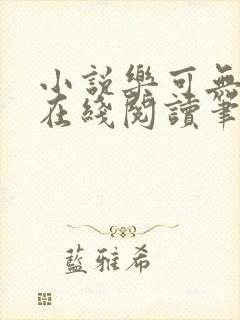 小說樂可無
在綫閱讀筆
藍雅希